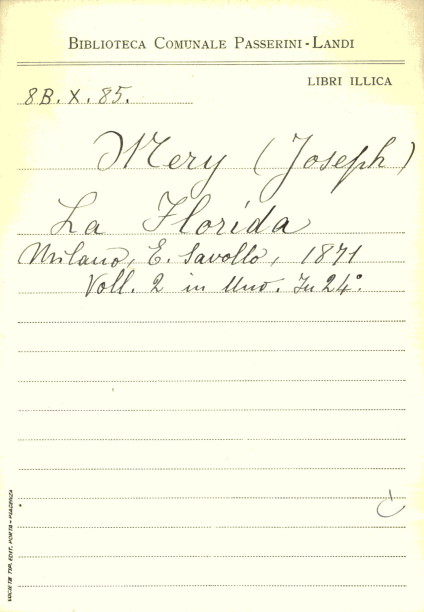 BIBLIOTECA COMUNALE PASSERINI-LANDI
LIBRI ILLICA
8B. X. 85.
Mery (Joseph)
La Florida
Milano, E. Savallo, 1871
Voll. 2 in Uno. In 24°.
SOCIETÀ TIP. EDIT. PORTA - PIACENZA